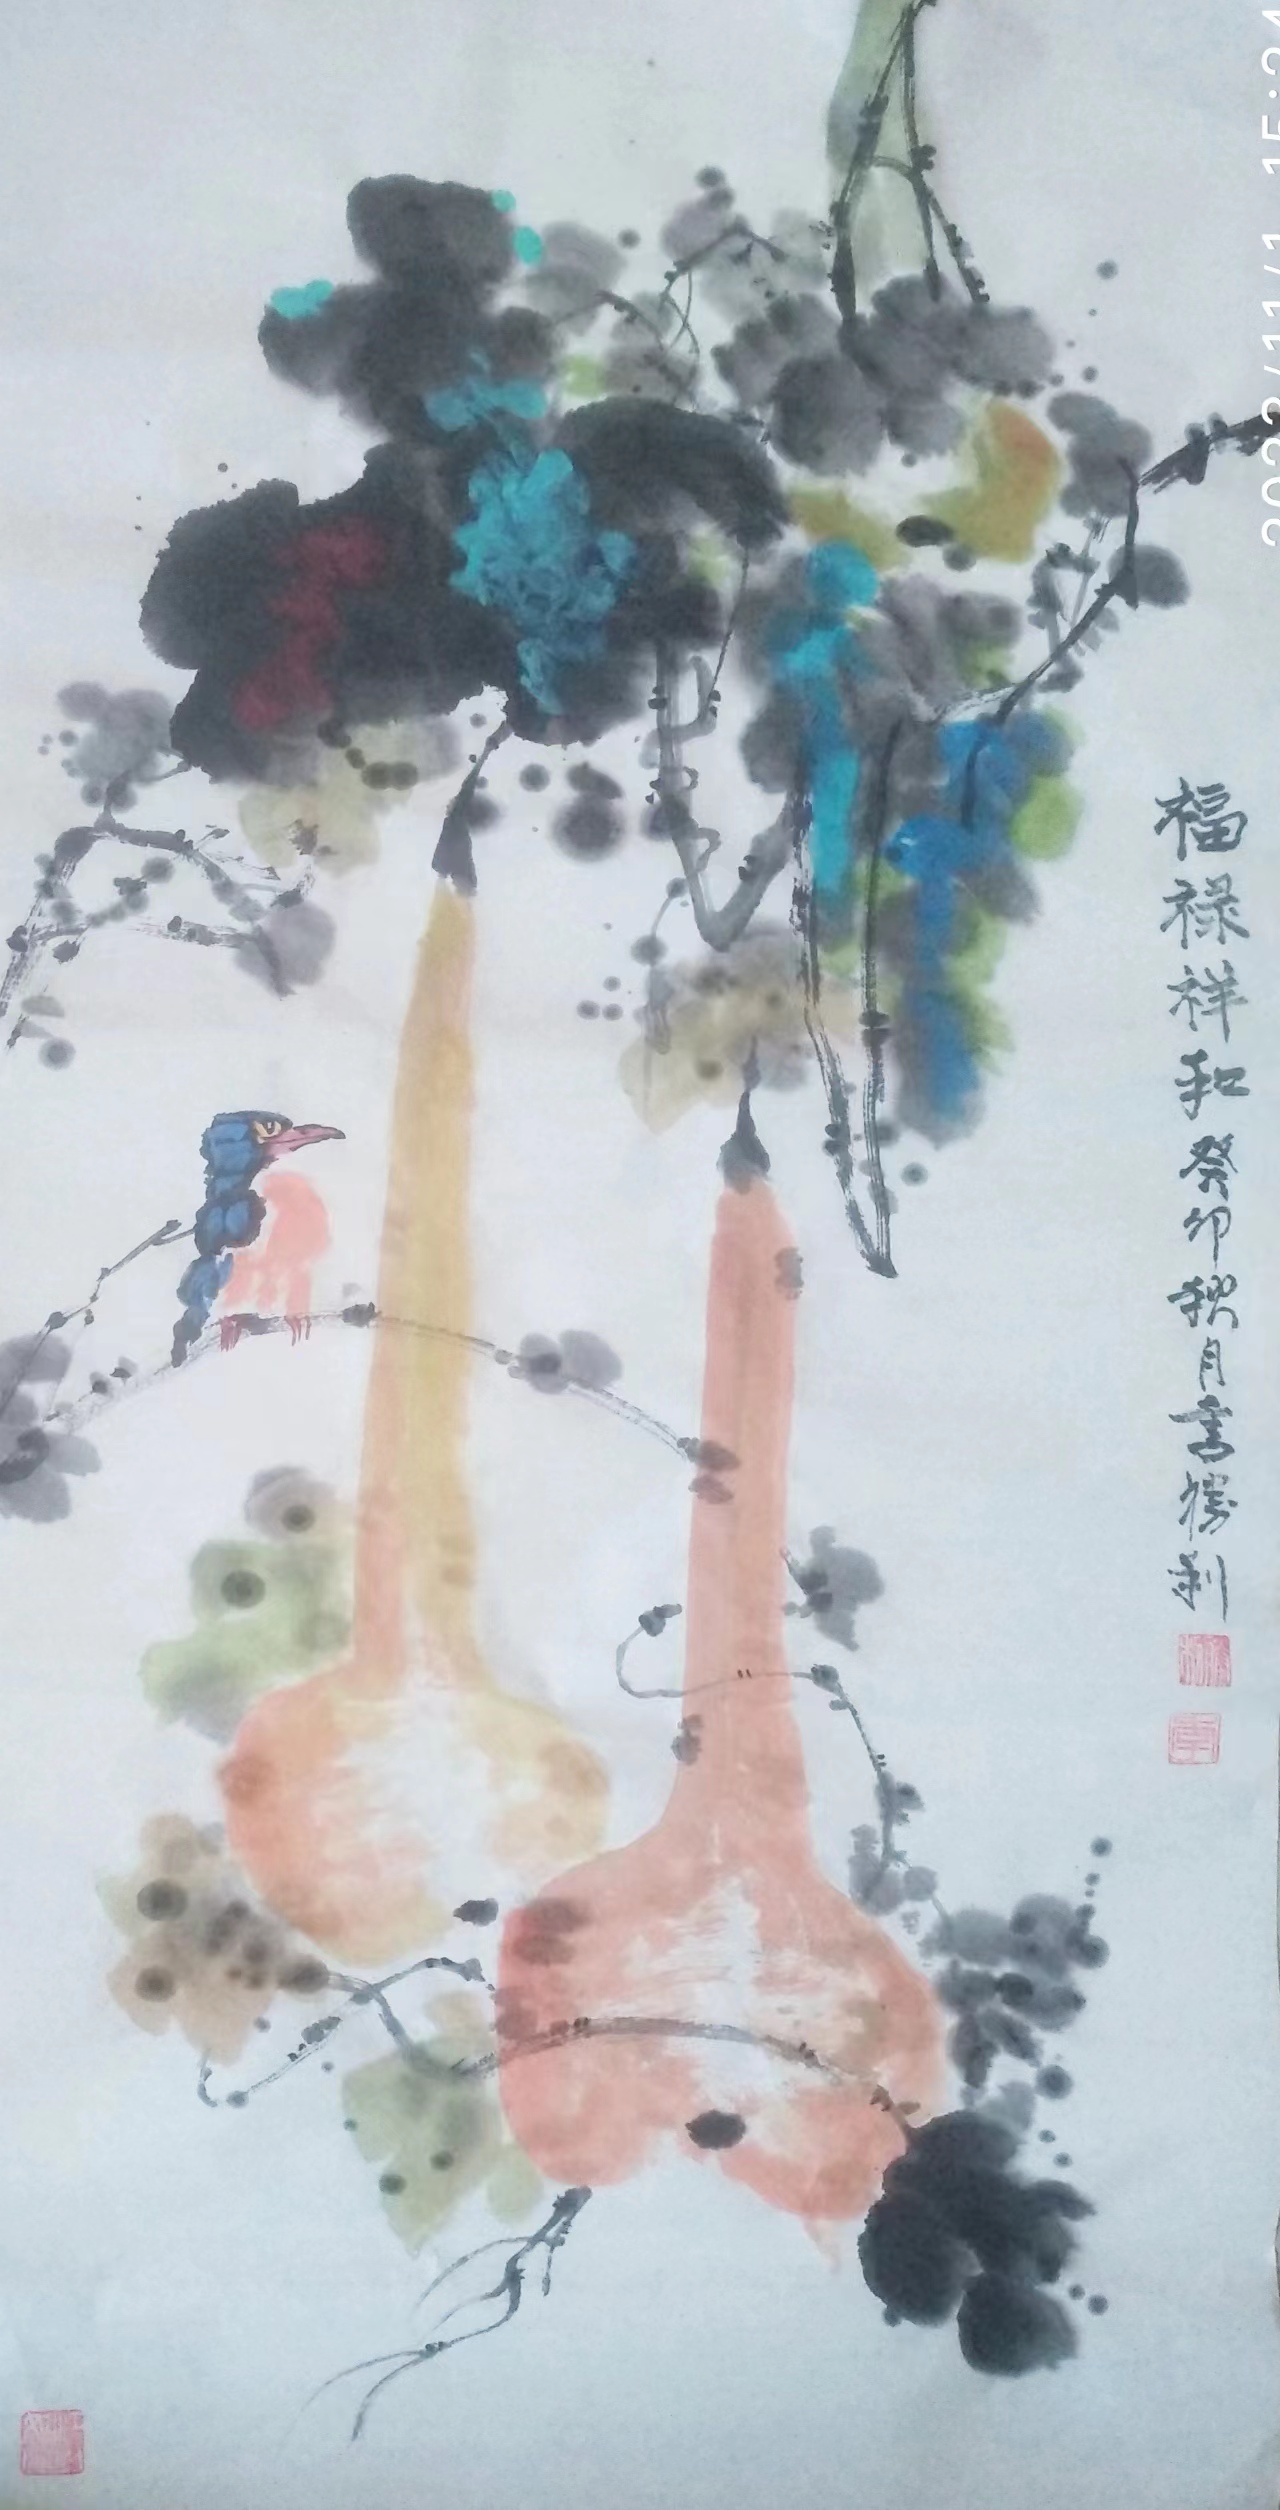 2023/11/1 15:24
福禄祥和癸卯秋月李勝利